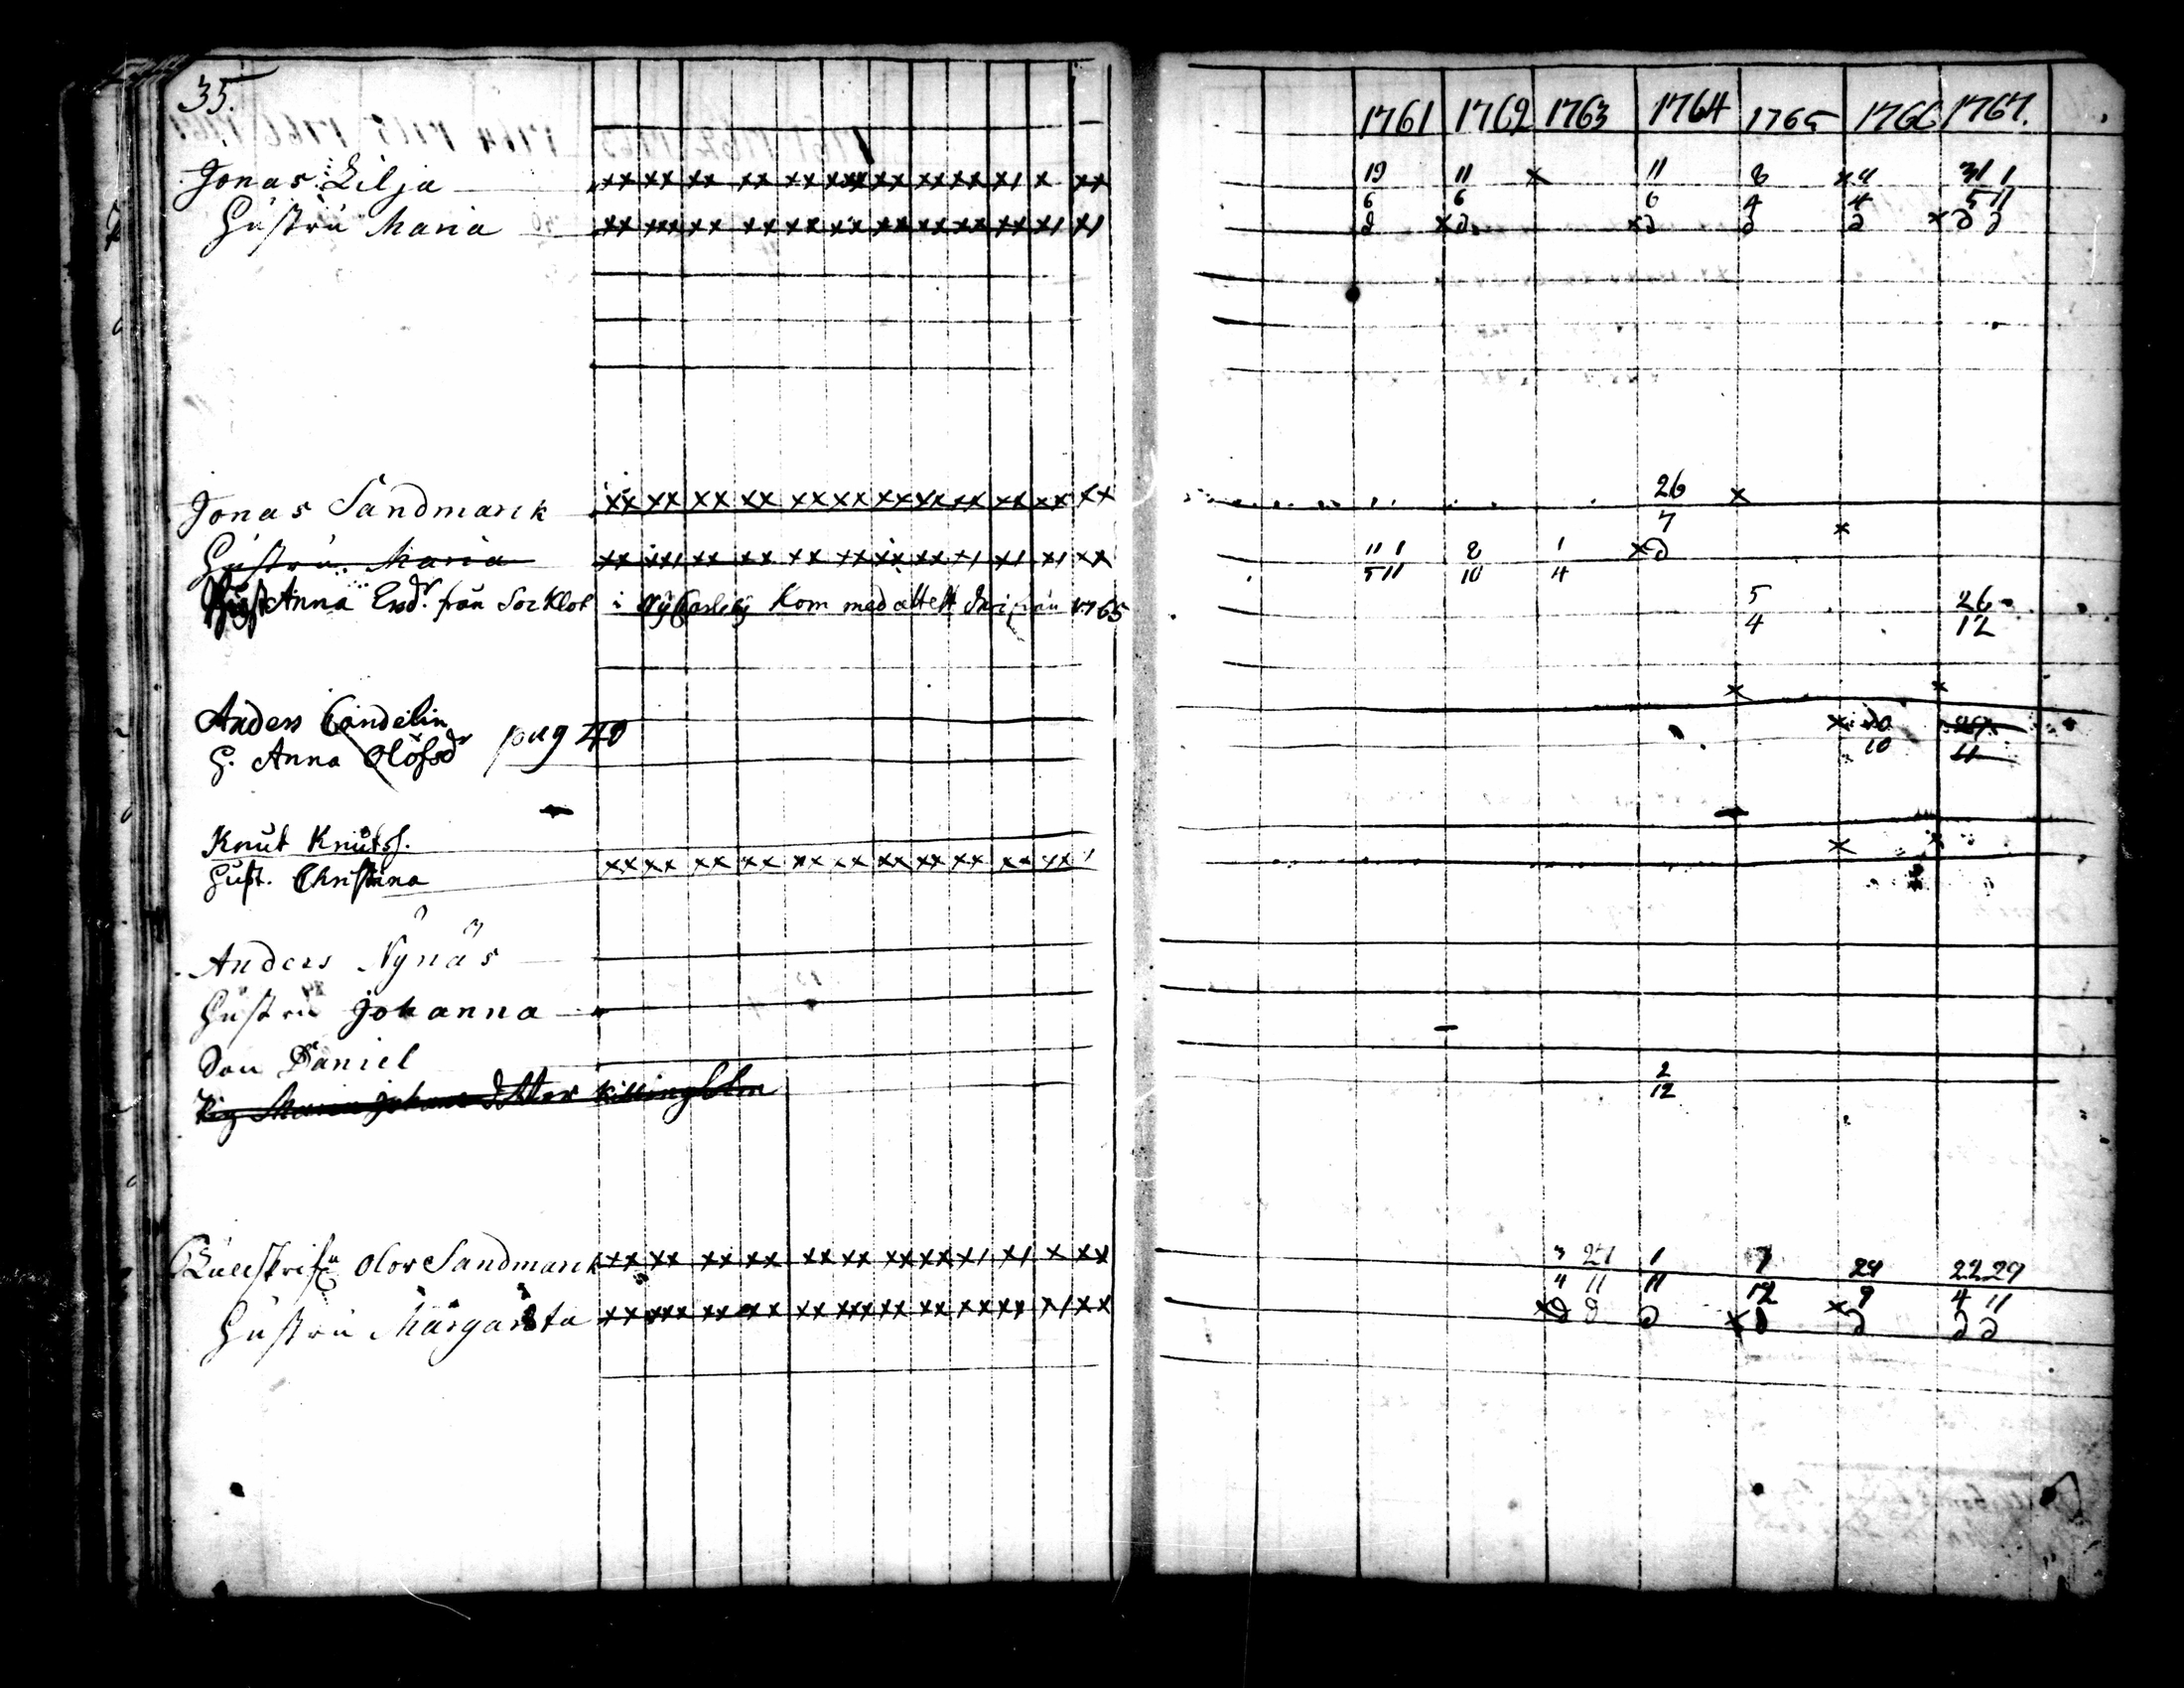 35.
1761 1762 1763 1764 1765 1766 1767.
Jonas Lilja xx xx xx xx xx xxx xx xx xx x1 x xx
19 11 x 11 8 x 4 31 1
6 6 6 4 4 5 11
Hustru Maria xx xxx xx xx xx xx xx xx xx xx x1 x1
d xd xd d d xd d
Jonas Sandmarck xx xx xx xx xx xx xx xx xx xx xx xx
26 x
7 x
Hustru Maria xx xx1 xx xx xx xx xx xx x1 x1 x1 xx
11 1 8 1 xd
5 11 10 4
Hust Anna Ersdr. från Sorklot i NyCarleby kom med attest 1765
5 26
4 12
x x
Anders Candelin
H. Anna Olofsdr pag 40
10
11
Knut Knutss.
Hust. Christina xx xx xx xx xx xx xx xx xx xx xx 1
x x
Anders Nynäs
Hustru Johanna
Son Daniel
2
12
Pig Maria
Olov Sandmarck xx xx xx xx xx xx xx xx x1 x1 x xx
3 27 1 7 29 22 29
4 11 11 12 9 4 11
Hustru Margareta xx xxx xx xx xx xxx xx xx xx xx x1 xx
xd d d xd xd d d